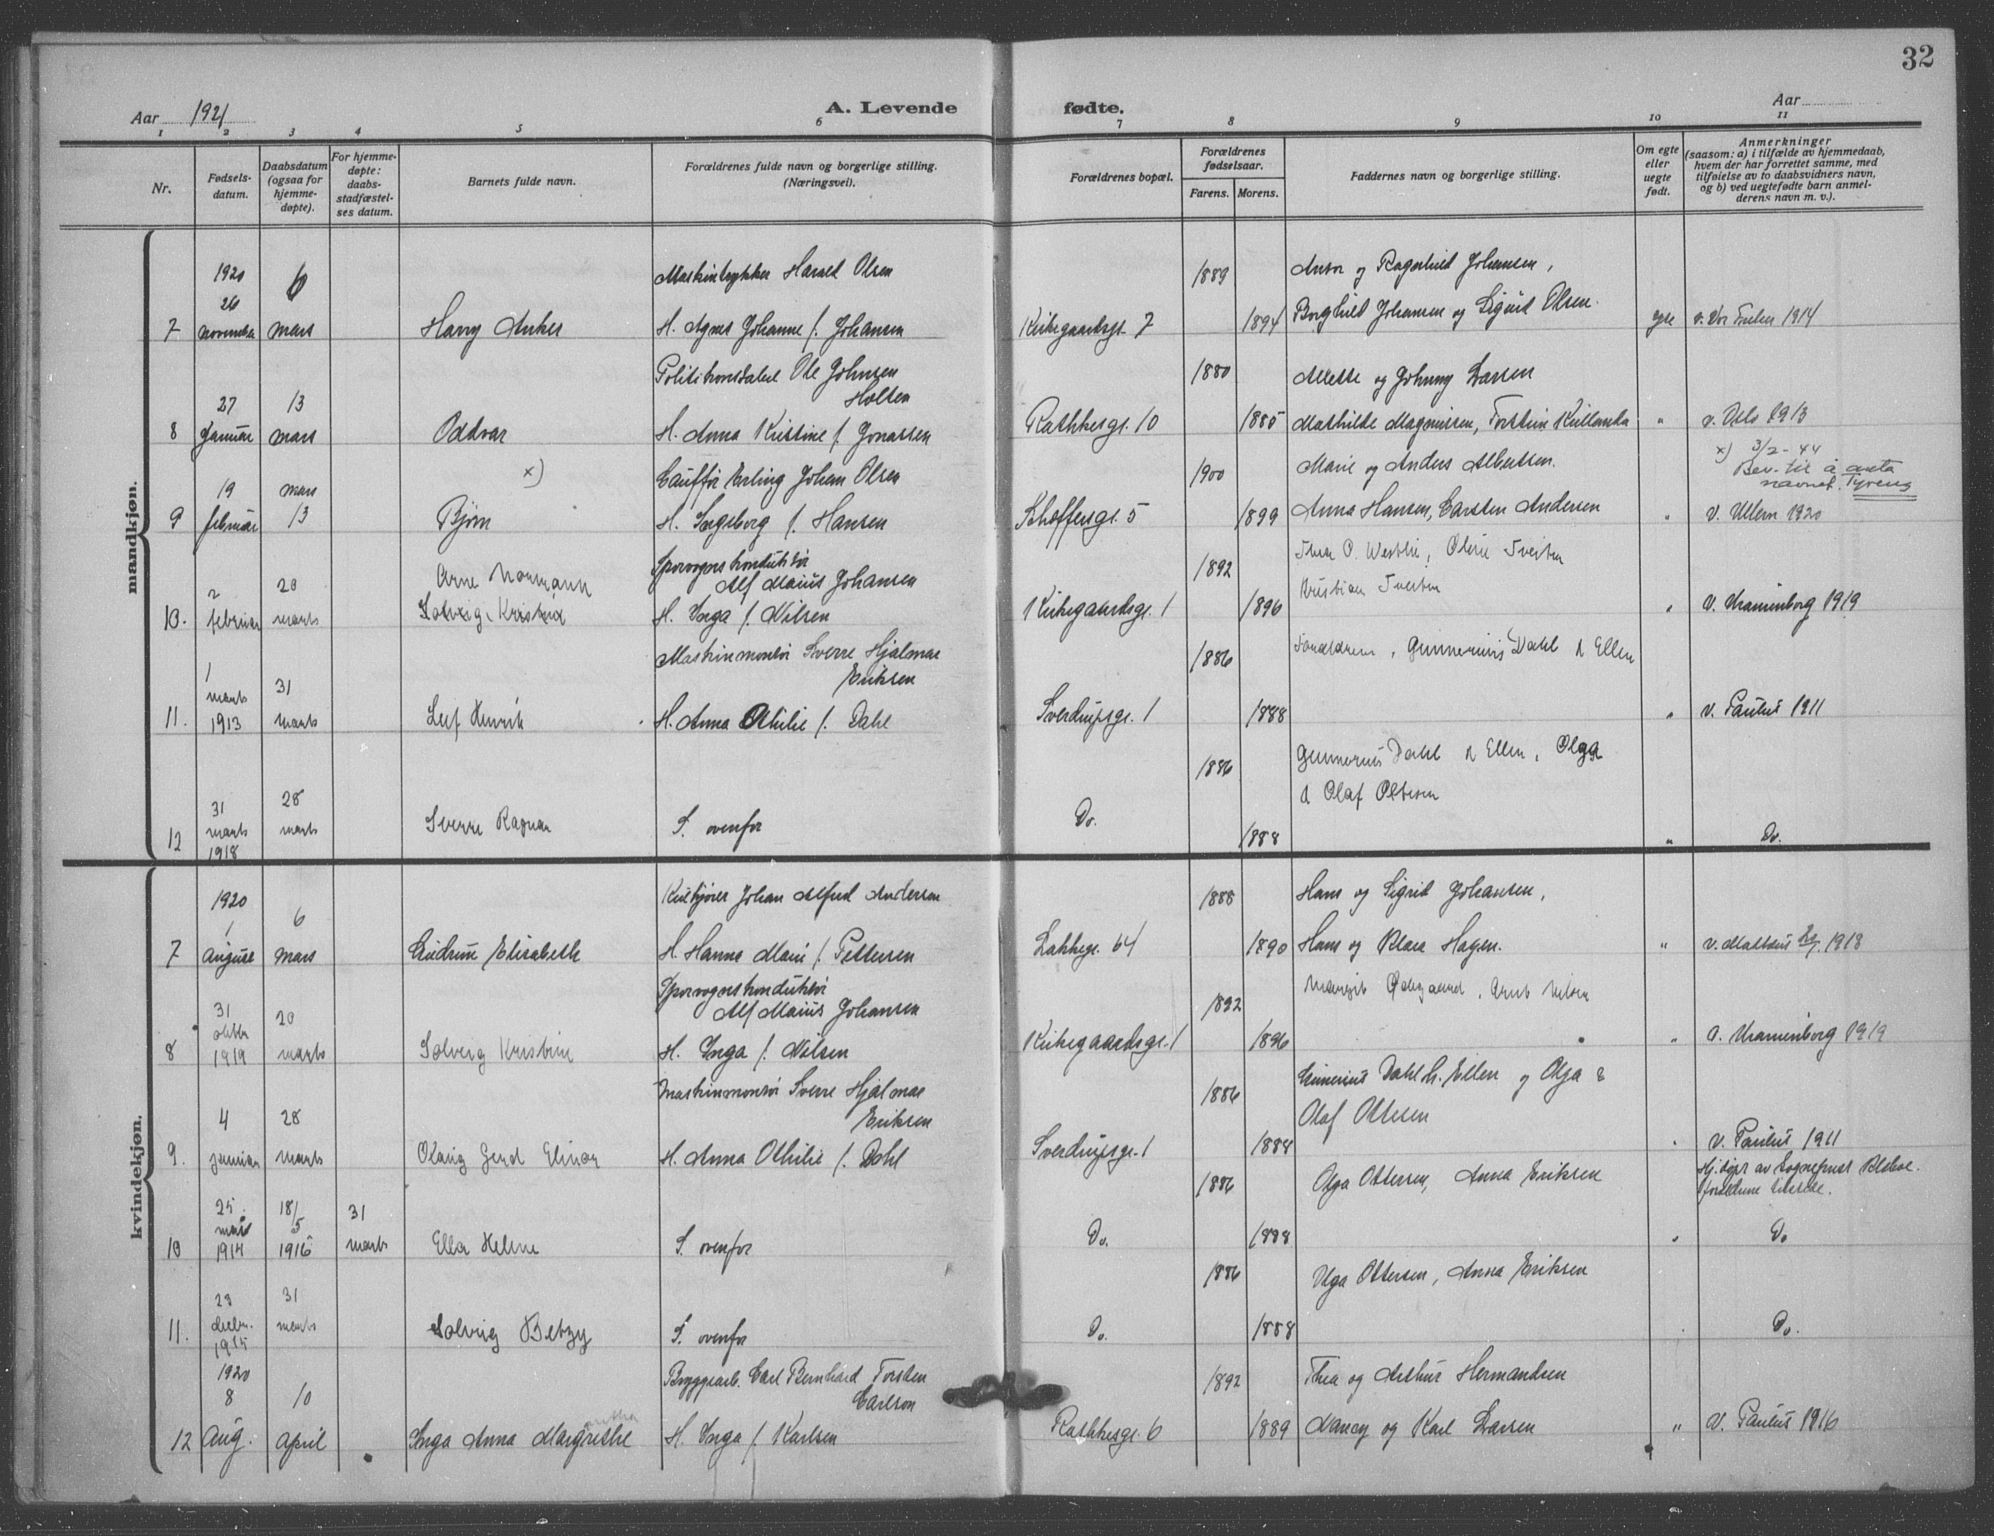 32
Aar 1921 A. Levende fødte. Aar
1 2 3 4 5 6 7 8 9 10 11
Nr.
Fødsels-
datum.
Daabsdatum
(ogsaa for
hjemme-
døpte).
For hjemme-
døpte:
daabs-
stadfæstel-
ses datum.
Barnets fulde navn.
Forældrenes fulde navn og borgerlige stilling.
(Næringsvei).
Forældrenes bopæl.
Forældrenes
fødselsaar.
Farens. Morens.
Faddernes navn og borgerlige stilling.
Om egte
eller
uegte
født.
Anmerkninger
(saasom: a) i tilfælde av hjemmedaab,
hvem der har forrettet samme, med
tilføielse av to daabsvidners navn,
og b) ved uegtefødte barn anmel-
derens navn m. v.).
mandkjøn.
1920 6 Maskintrykker Harald Olsen 1889 og Ragnhild Johansen,
26
7 november mars Harry Anker H. Agnes Johanne f. Johansen Kirkegaardsgt. 7 1894 Borghild Johansen og Sigurd Olsen. egte v. Vor Frelser 1914
Politikonstabel Ole Johnsen 1880 og Johnny Larsen
27 13 Holten
8 Januar mars Oddvar H. Anna Kristine f. Jonassen Rathkesgt. 10 1885 Mathilde Magnussen, Torstein " v. Oslo 1913
x) Chauffør Erling Johan Olsen 1900 Marie og Anders Albertsen. x) 3/2-44
Bev. til å anta
navnet Tyreng
19 mars
9 februar 13 Bjørn H. Ingeborg f. Hansen Schoffersgt. 5 1899 Anna Hansen, Carsten Andersen " v. Ullern 1920
Sporvognskonduktør 1892 Thea O. Westlie, Oline Tveiten
2 20 Arne Normann Alf Marius Johansen Kristian Tveiten
10. februar marts Solveig Kristine H. Inga f. Nilsen Kirkegaardsgt. 1 1896 " v. Uranienborg 1919
Maskinmontør Sverre Hjalmar 1886 Forældrene, Gunnerius Dahl & Ellen
1 31 Eriksen
11. marts 1913 marts Leif Henrik H. Anna Othilie f. Dahl Sverdrupsgt. 1 1888 " v. Paulus 1911
1886 Gunnerius Dahl & Ellen, Olga
31 28 & Olaf Ottesen
12 marts 1918 marts Sverre Ragnar S. ovenfor Do. 1888 " Do.
kvindekjøn.
1920 6 Johan Alfred Andersen 1888 Hans og Sigrid Johansen,
1
7 august mars Gudrun Elisabeth H. Hanna Marie f. Pettersen Lakkegt. 64 1890 Hans og Klara Hagen. " v. Matteus 1918
Sporvognskonduktør 1892 Margit Ødegaard, Arnt Nilsen
31 20 Alf Marius Johansen
8 oktbr 1919 marts Solveig Kristine H. Inga f. Nilsen Kirkegaardsgt. 1 1896 " v. Uranienborg 1919
Maskinmontør Sverre Hjalmar 1886 Gunnerius Dahl h. Ellen og Olga &
4 28 Eriksen Olaf Ottesen
9. januar marts Gerd Elinor H. Anna Othilie f. Dahl Sverdrupsgt. 1 1888 " v. Paulus 1911
1886 Olga Ottersen, Anna Eriksen Hj. døpt av Sogneprest
forældrene tilstede.
25 18/5 31
10 mars 1914 1916 marts Ella Helene S. ovenfor Do. 1888 " Do
1886 Olga Ottersen, Anna Eriksen
23 31
11. decbr. 1915 marts Solveig Betzy S. ovenfor Do. 1888 Do.
1920 Byggearb. Carl Bernhard Torsten 1892 Thea og Arthur Hermandsen
8 10 Carlson
12 Aug. april Inga Anna Margrethe H. Inga f. Karlsen Rathkesgt. 6 1889 Nancy og Karl Larsen " v. Paulus 1916